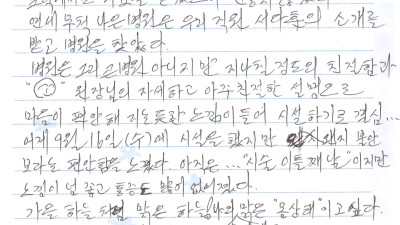 연세 무척 나은 병원은 우리 직원 서다훈의 소개를
받고 병원을 찾았다.
병원은 그리 큰 병원 아니지만 지나친 정도의 친절함과
원장님의 자세하고 아주 친절한 설명으로
마음이 편안해 지는 듯한 느낌이 들어 시설하기로 결심...
어제 9월 14일 (수)에 시설을 했지만 왠지 불안
보다는 편안함을 느꼈다. 아직은... "시술 이틀째 날" 이지만
느낌이 넘 좋고 통증도 많이 없어졌다.
가을 하늘 처럼 맑은 하늘 맑은 "몸상태" 이고 싶다.